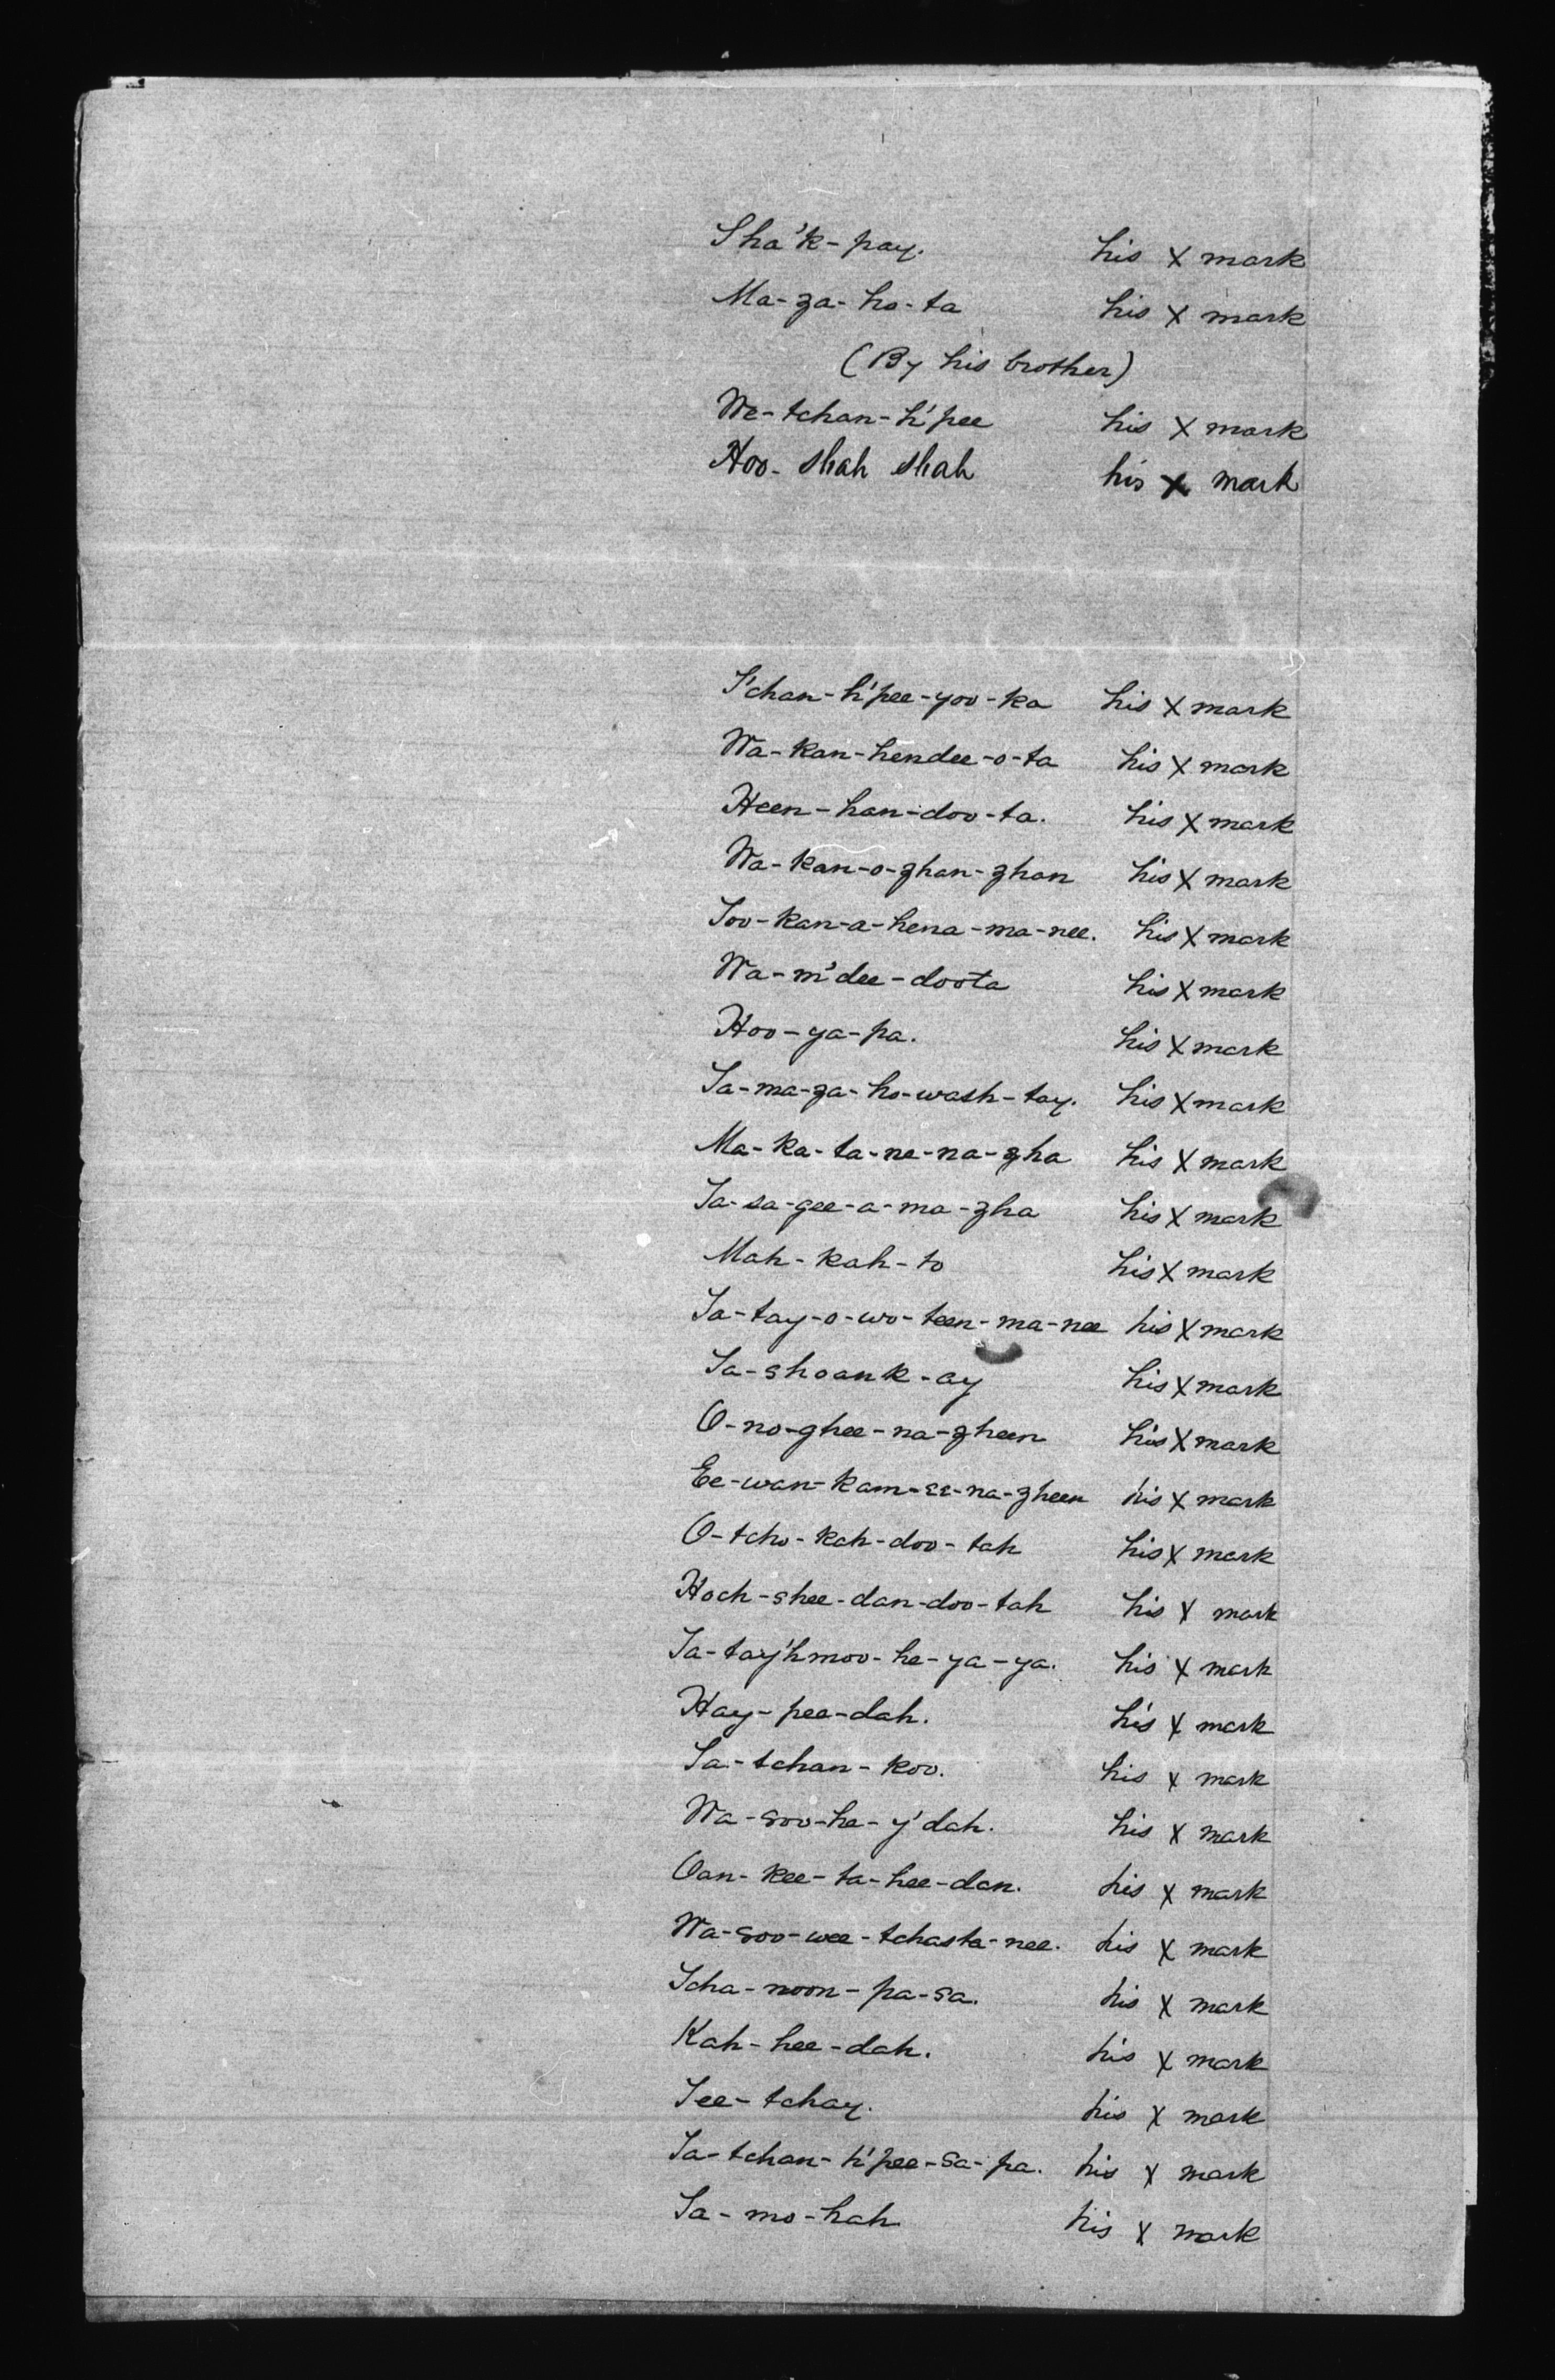 Sha'k-pay. his X mark
Ma-za-ho-ta his X mark
(By his brother)
We-tchan-h'pee his X mark
Hoo-shah shah his X mark
T'chan-h'pee-yoo-ka his X mark
Wa-kan-hendee-o-ta his X mark
Heen-han-doo-ta. his X mark
Wa-kan-o-zhan-zhan his X mark
Too-kan-a-hena-ma-nee. his X mark
Wa-m'dee-doota his X mark
Hoo-ya-pa. his X mark
Ta-ma-za-ho-wash-tay. his X mark
Ma-ka-ta-ne-na-zha his X mark
Ta-sa-gee-a-ma-zha his X mark
Mah-kah-to his X mark
Ta-tay-o-wo-teen-ma-nee his X mark
Ta-shoank-ay his X mark
O-no-ghee-na-zheen his X mark
Ee-wan-kam-ee-na-zheen his X mark
O-tcho-kah-doo-tah his X mark
Hoch-shee-dan-doo-tah his X mark
Ta-tay'hmoo-he-ya-ya. his X mark
Hay-pee-dah. his X mark
Ta-tchan-koo. his X mark
Wa-soo-he-y'dah. his X mark
Oan-kee-ta-hee-dan. his X mark
Wa-soo-wee-tchasta-nee. his X mark
Tcha-noon-pa-sa. his X mark
Kah-hee-dah. his X mark
Tee-tchay. his X mark
Ta-tchan-h'pee-sa-pa. his X mark
Ta-mo-hah his X mark